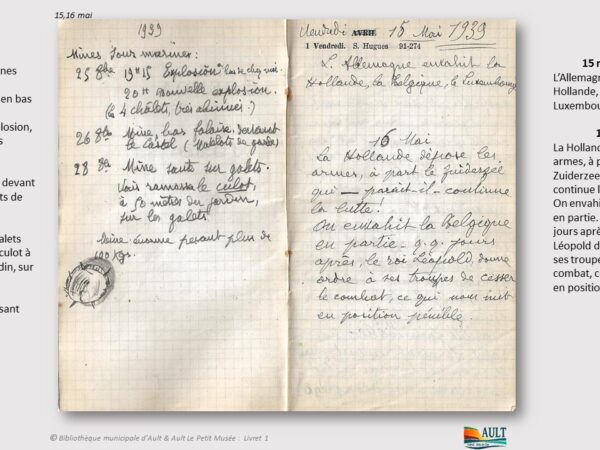 15,16 mai
1939
Mines sous marines :
25 8bre 19h15 Explosion bas de chez moi.
20H Nouvelle explosion.
(4 châlets, très abimés !)
26 8bre Mine, bas falaise, devant
le Castel (Matelots de garde)
28 8bre Mine saute sur galets.
Vais ramasser le culot,
à 50 mètres du jardin,
sur les galets
Mine énorme pesant plus de
100 kgs.
Vendredi AVRIL 15 Mai 1939
1 Vendredi. S. Hugues 91-274
L'Allemagne envahit la
Hollande, la Belgique, le Luxembourg.
16 Mai
La Hollande dépose les
armes, à part le Zuiderzée
qui – paraît-il – continue
la lutte !
On envahit la Belgique
en partie - q.q. jours
après, le roi Léopold, donne
ordre à ses troupes de cesser
le combat, ce qui nous met
en position pénible.
nes
en bas
losion,
s
devant
ts de
alets
culot à
din, sur
sant
15 m
L'Allemag
Hollande,
Luxembou
1
La Holland
armes, à p
Zuiderzee
continue l
On envahi
en partie.
jours aprè
Léopold d
ses troupe
combat, c
en positio
© Bibliothèque municipale d'Ault & Ault Le Petit Musée : Livret 1
AULT